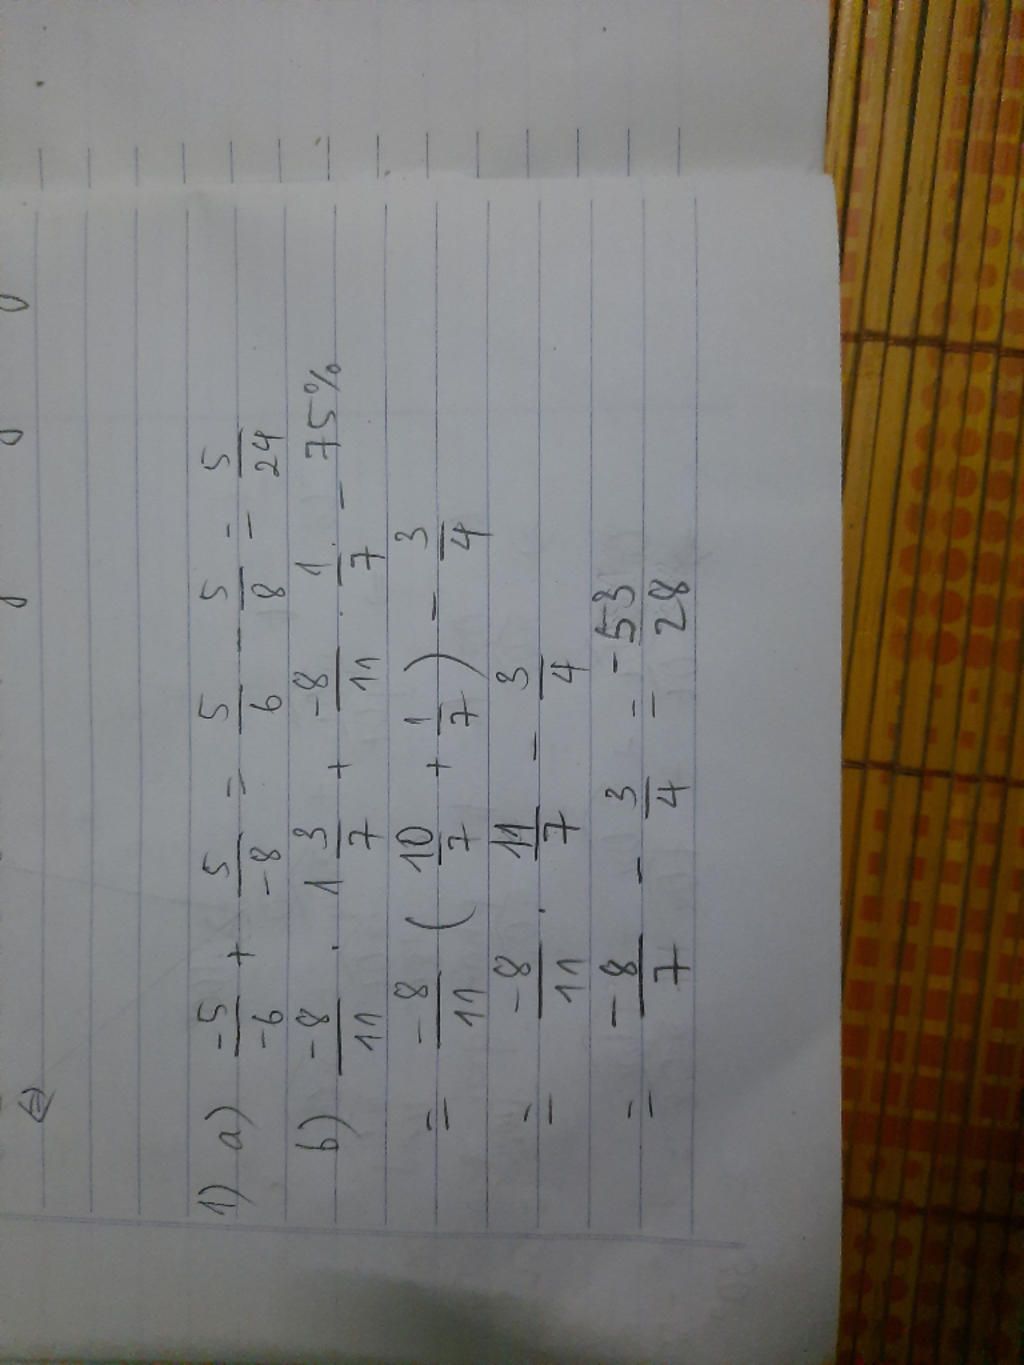 1) a) -5/-6 + 5/-8 = 5/6 - 5/8 = 5/24
b) -8/11 . 1 3/7 + -8/11 . 1/7 - 75%
= -8/11 ( 10/7 + 1/7 ) - 3/4
= -8/11 . 11/7 - 3/4
= -8/7 - 3/4 = -53/28